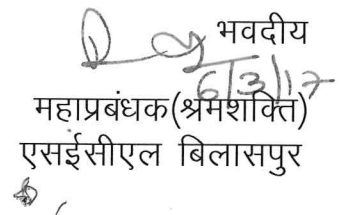 भवदीय
6/3/17
महाप्रबंधक(श्रमशक्ति)
एसईसीएल बिलासपुर